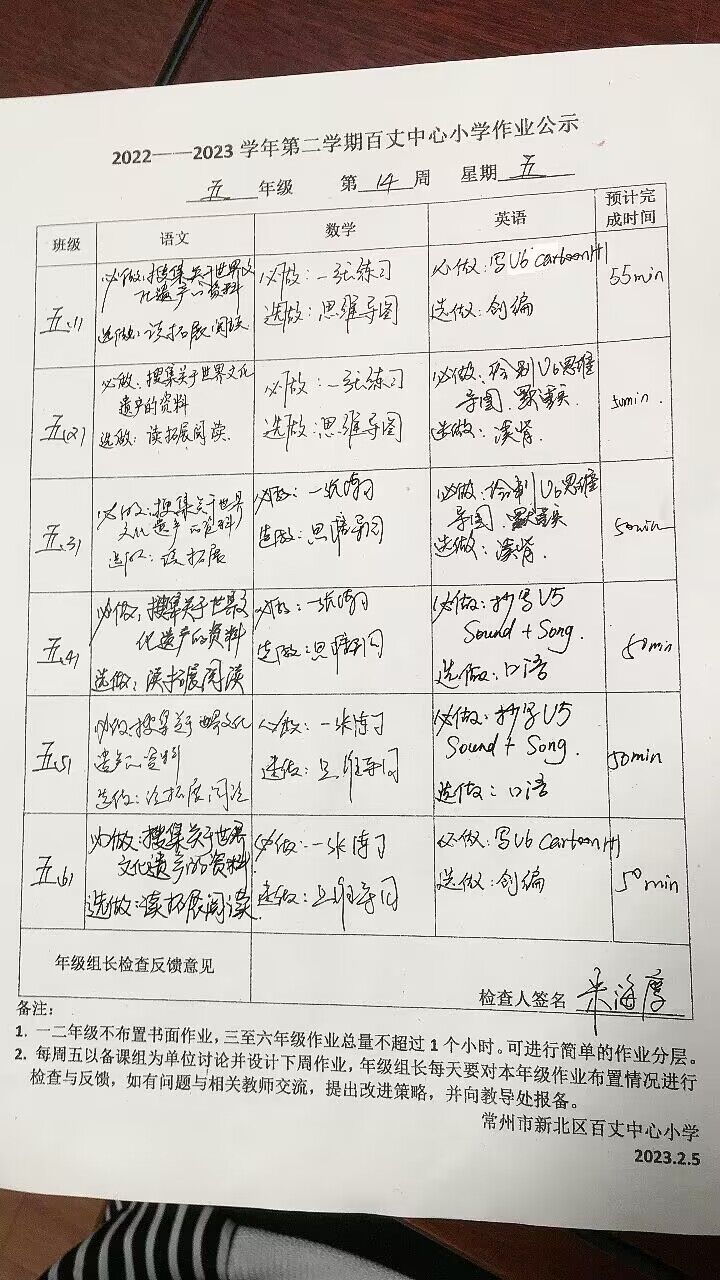 2022——2023 学年第二学期百丈中心小学作业公示
五 年级 第 14 周 星期 五
班级 语文 数学 英语 预计完成时间
五(1)
必做:搜集关于世界文
化遗产的资料
选做:读拓展阅读
必做:一张练习
选做:思维导图
必做:写U6 cartoon
选做:创编
55min
五(2)
必做:搜集关于世界文化
遗产的资料
选做:读拓展阅读.
必做:一张练习
选做:思维导图
必做:绘制U6思维
导图.
选做:
50min.
五(3)
必做:搜集关于世界
文化遗产的资料
选做:读拓展
必做:一张练习
选做:思维导图
必做:绘制U6思维
导图.
选做:
50min
五(4)
必做:搜集关于世界文
化遗产的资料
选做:读拓展阅读
必做:一张练习
选做:思维导图
必做:抄写U5
Sound + Song.
选做:口语
50min
五(5)
必做:搜集关于世界文化
遗产的资料
选做:读拓展阅读
必做:一张练习
选做:思维导图
必做:抄写U5
Sound + Song.
选做:口语
50min
五(6)
必做:搜集关于世界
文化遗产的资料
选做:读拓展阅读.
必做:一张练习
选做:思维导图
必做:写U6 cartoon
选做:创编
50min
年级组长检查反馈意见
检查人签名
备注:
1. 一二年级不布置书面作业,三至六年级作业总量不超过 1 个小时。可进行简单的作业分层。
2. 每周五以备课组为单位讨论并设计下周作业,年级组长每天要对本年级作业布置情况进行
检查与反馈,如有问题与相关教师交流,提出改进策略,并向教导处报备。
常州市新北区百丈中心小学
2023.2.5